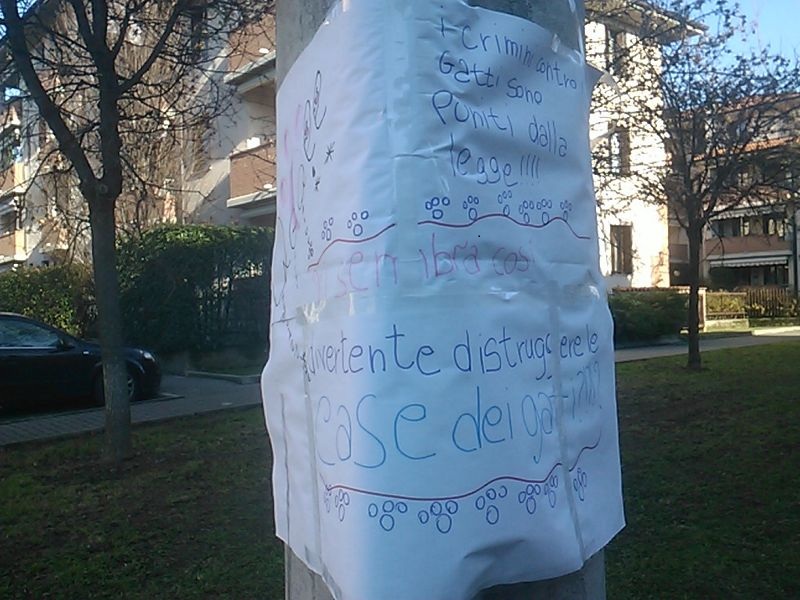 i crimini contro i
gatti sono
puniti dalla
legge!!!!
ti sembra così
divertente distruggere le
case dei gatti???